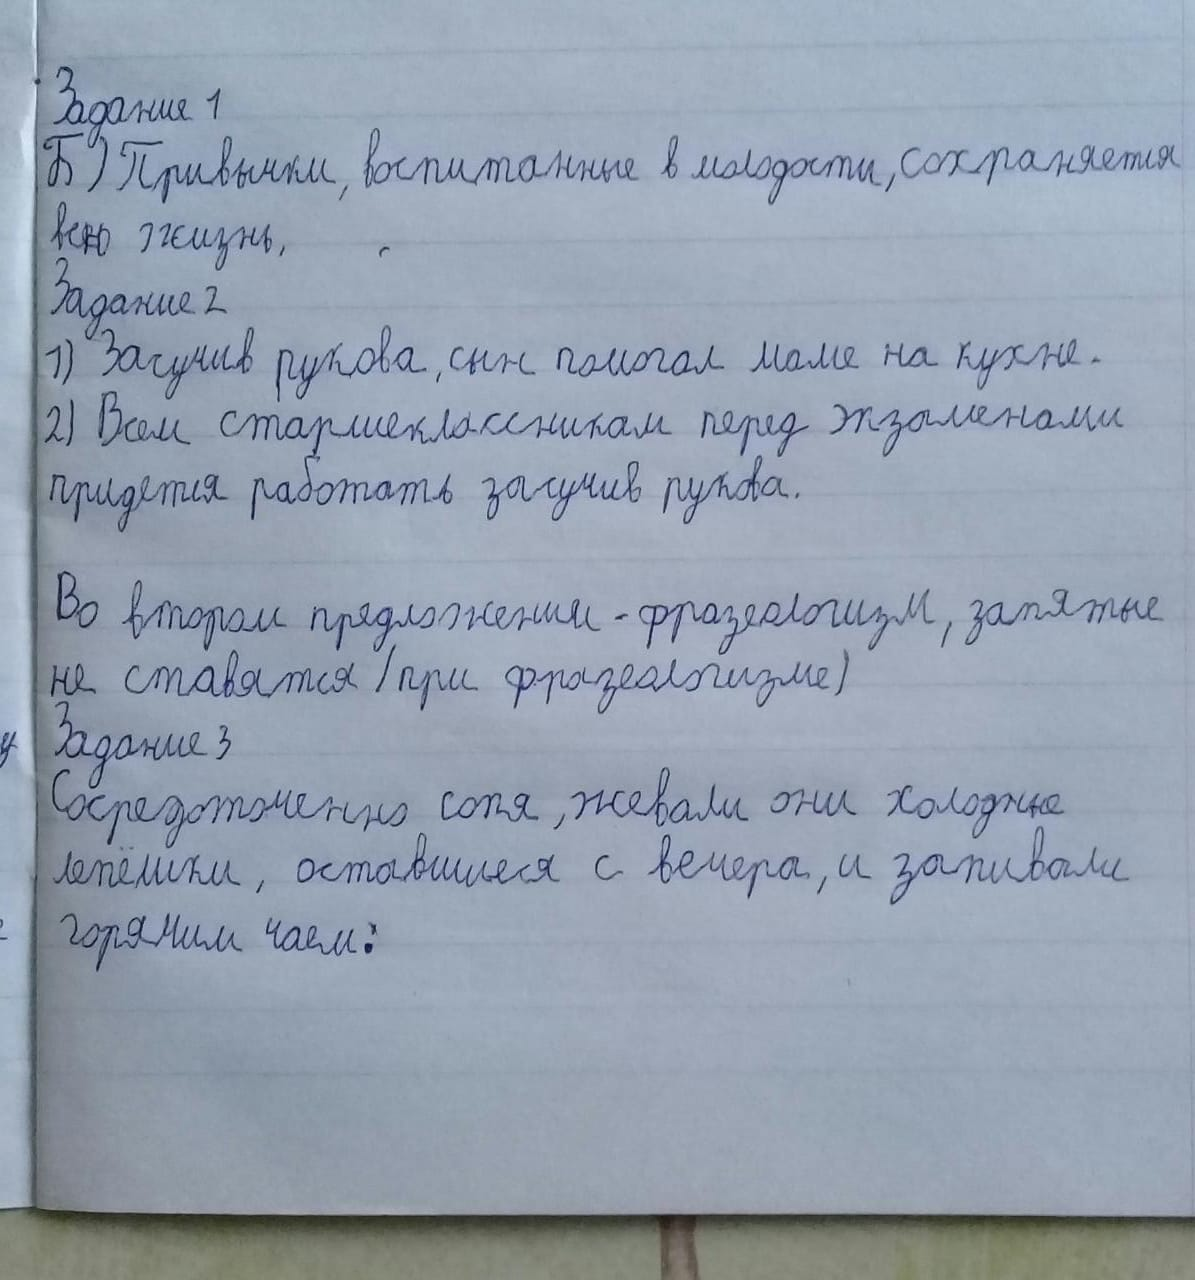 Задание 1
Б) Привычки, воспитанные в молодости, сохраняется
всю жизнь.
Задание 2
1) Засучив рукова, сын помогал маме на кухне.
2) Всем старшеклассникам перед экзаменами
придется работать засучив рукова.
Во втором предложении - фразеологизм, запятые
не ставятся (при фразеологизме)
Задание 3
Сосредоточенно сопя, жевали они холодные
лепёшки, оставшиеся с вечера, и запивали
горячим чаем: